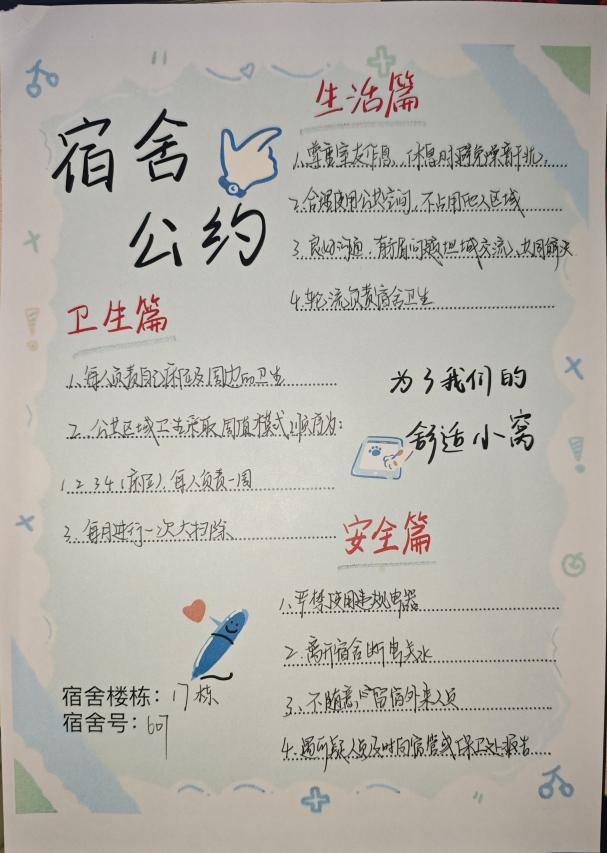 宿舍
公约
生活篇
1、尊重室友作息，休息时避免噪音干扰。
2、合理使用公共空间，不占用他人区域
3、良好沟通，有矛盾问题坦诚交流、共同解决
4、轮流负责宿舍卫生
卫生篇
1、每人负责自己床位及周边的卫生
2、公共区域卫生采取周值模式，顺序为：
1 2 3 4 (床位)，每人负责一周
3、每月进行一次大扫除
为了我们的
舒适小窝
安全篇
1、严禁使用违规电器
2、离开宿舍断电关水
3、不随意留宿外来人员
4、遇可疑人员及时向宿管或保卫处报告
宿舍楼栋：17栋
宿舍号：607